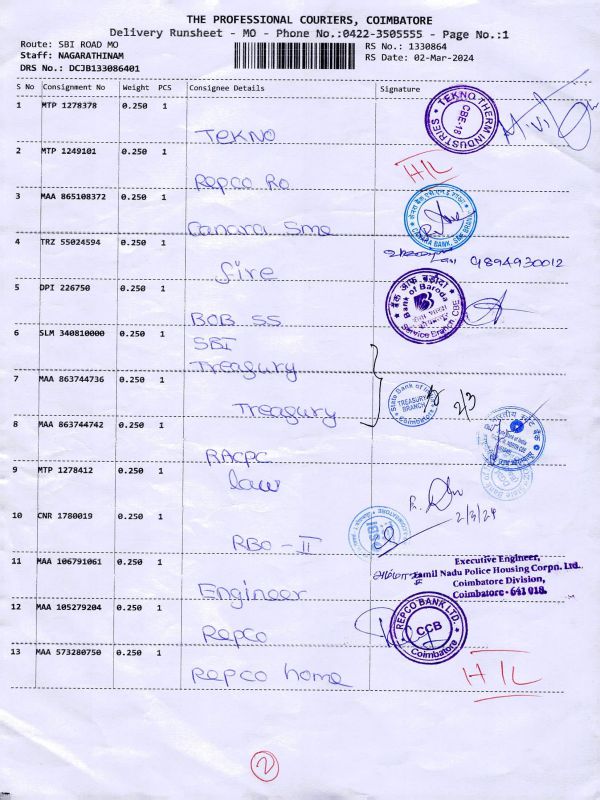 THE PROFESSIONAL COURIERS, COIMBATORE
Delivery Runsheet - MO - Phone No.:0422-3505555 - Page No.:1
Route: SBI ROAD MO
RS No.: 1330864
Staff: NAGARATHINAM
RS Date: 02-Mar-2024
DRS No.: DCJB133086401
S No Consignment No Weight PCS Consignee Details Signature
1 MTP 1278378 0.250 1
TEKNO
TEKNO THERM INDUSTRIES CBE-18
2 MTP 1249101 0.250 1
Repco Ro
H/L
3 MAA 865108372 0.250 1
Canara Sme
CANARA BANK, SME
4 TRZ 55024594 0.250 1
fire
9894930012
5 DPI 226750 0.250 1
BOB SS
बैंक ऑफ़ बड़ौदा
Bank of Baroda
Service Branch CBE
6 SLM 340810000 0.250 1
SBI
Treasury
7 MAA 863744736 0.250 1
Treasury
State Bank of
TREASURY
BRANCH
Coimbatore
2/3
8 MAA 863744742 0.250 1
RACPC
9 MTP 1278412 0.250 1
law
2/3/24
10 CNR 1780019 0.250 1
RBO - II
11 MAA 106791061 0.250 1
Engineer
Executive Engineer,
Tamil Nadu Police Housing Corpn. Ltd.
Coimbatore Division,
Coimbatore - 641 018.
12 MAA 105279204 0.250 1
Repco
REPCO BANK LTD.
CCB
Coimbatore
13 MAA 573280750 0.250 1
Repco home
H/L
2